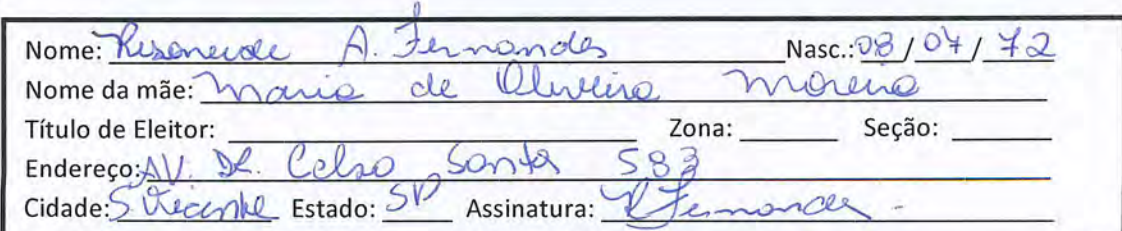 Nome: Risoneide A. Fernandes Nasc.: 08 / 07 / 72
Nome da mãe: Maria de Oliveira Moreira
Título de Eleitor: Zona: Seção:
Endereço: AV. DR. Celso Santos 583
Cidade: S. Vicente Estado: SP Assinatura: RFernandes